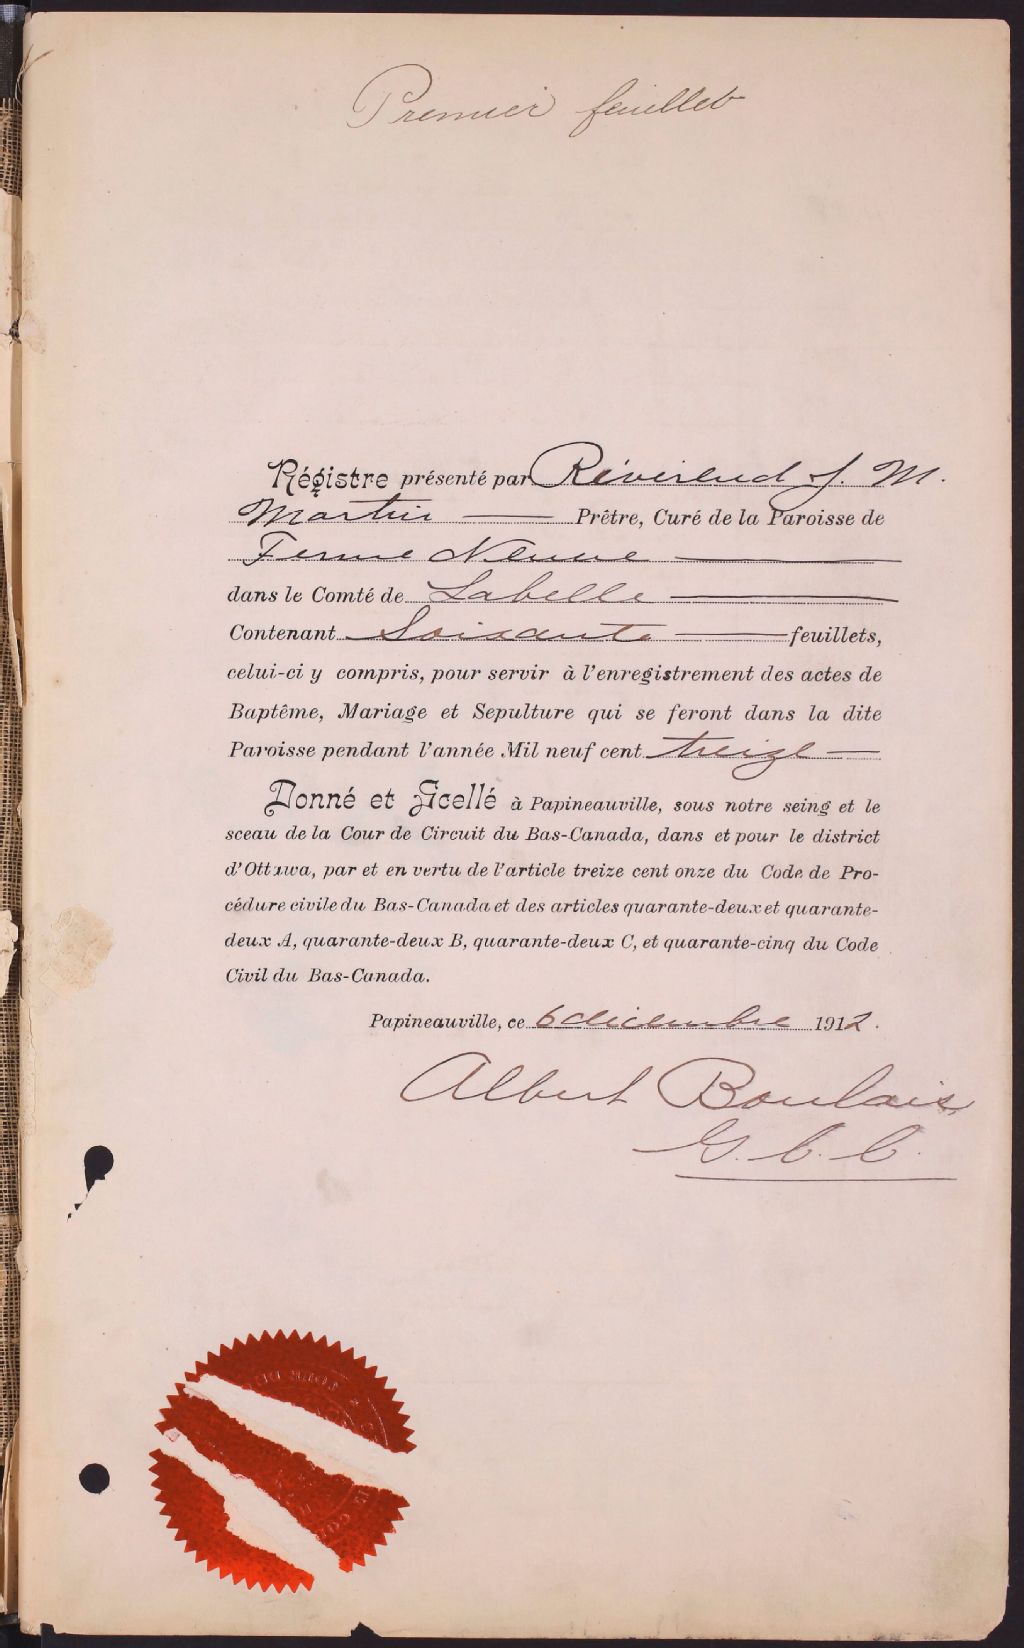 Premier feuillet
Régistre présenté par Révérend J. M.
Martin Prêtre, Curé de la Paroisse de
Ferme Neuve
dans le Comté de Labelle
Contenant Soixante feuillets,
celui-ci y compris, pour servir à l'enregistrement des actes de
Baptême, Mariage et Sepulture qui se feront dans la dite
Paroisse pendant l'année Mil neuf cent treize
Donné et Scellé à Papineauville, sous notre seing et le
sceau de la Cour de Circuit du Bas-Canada, dans et pour le district
d'Ottawa, par et en vertu de l'article treize cent onze du Code de Pro-
cédure civile du Bas-Canada et des articles quarante-deux et quarante-
deux A, quarante-deux B, quarante-deux C, et quarante-cinq du Code
Civil du Bas-Canada.
Papineauville, ce 6 décembre 1912.
Albert Boulais
G. C. C.